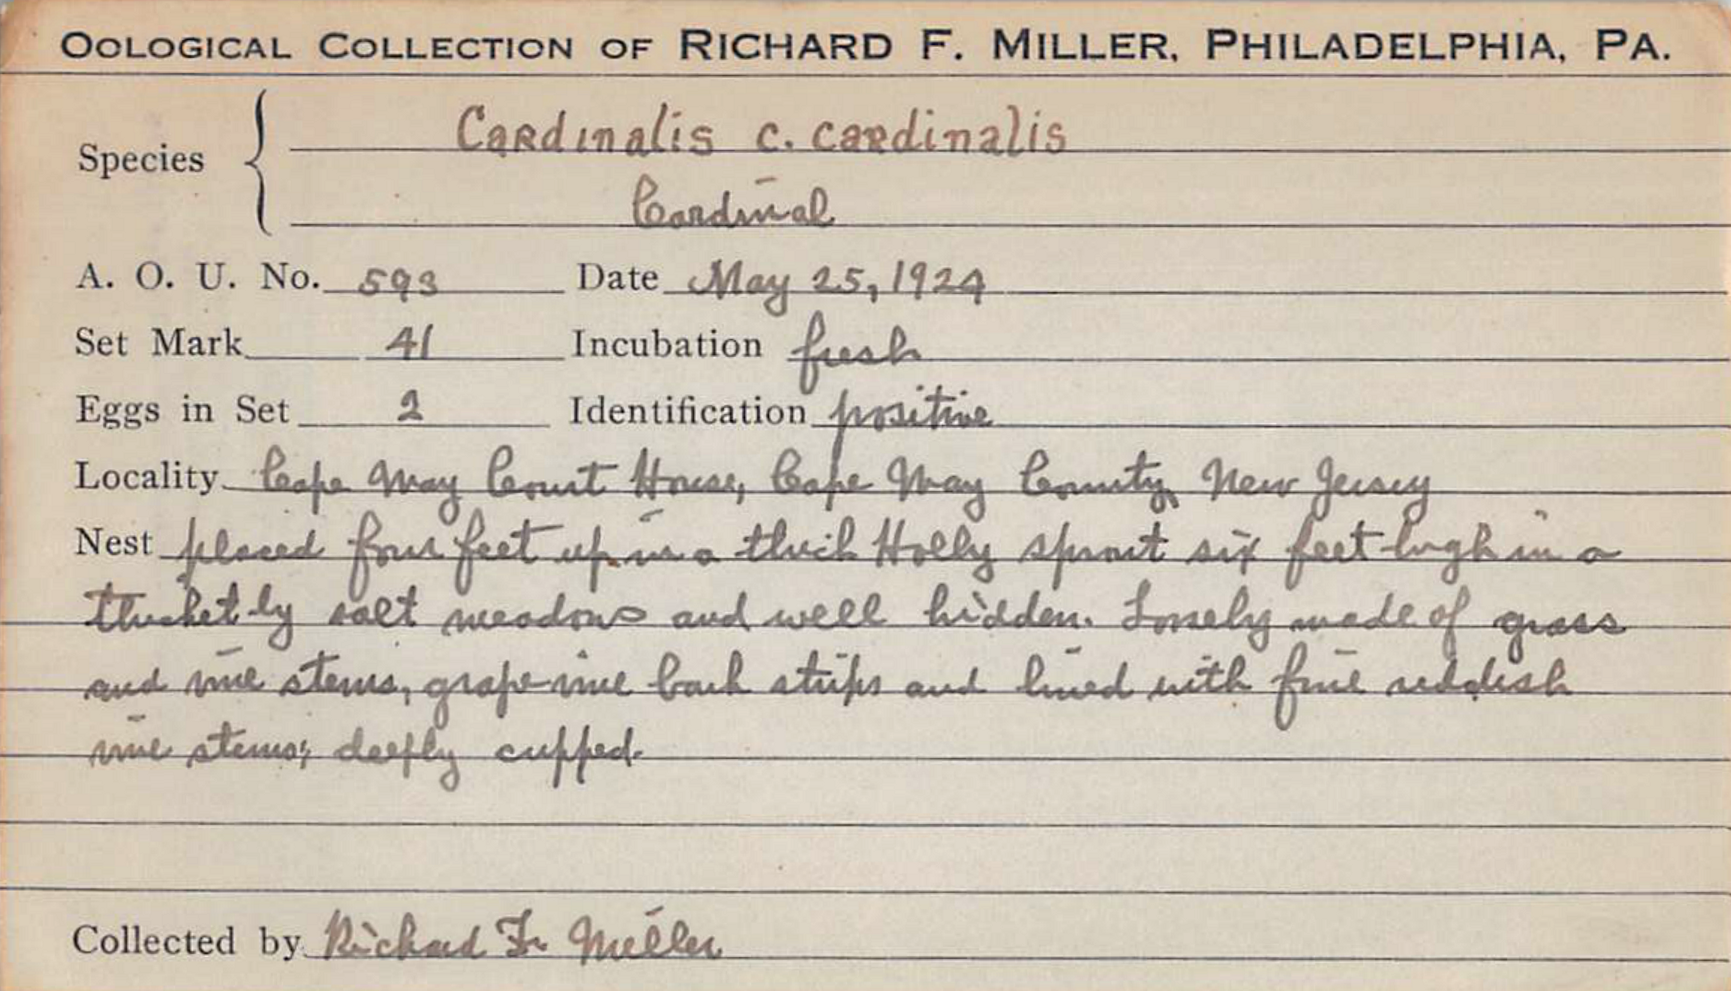 OOLOGICAL COLLECTION OF RICHARD F. MILLER, PHILADELPHIA, PA.
Species Cardinalis c. cardinalis
Cardinal
A. O. U. No. 593 Date May 25, 1924
Set Mark 41 Incubation fresh
Eggs in Set 2 Identification positive
Locality Cape May Court House, Cape May County, New Jersey
Nest placed four feet up in a thick Holly sprout six feet high in a
thicket by salt meadows and well hidden. Loosely made of grass
and vine stems, grape-vine bark strips and lined with fine reddish
vine stems; deeply cupped.
Collected by Richard F. Miller